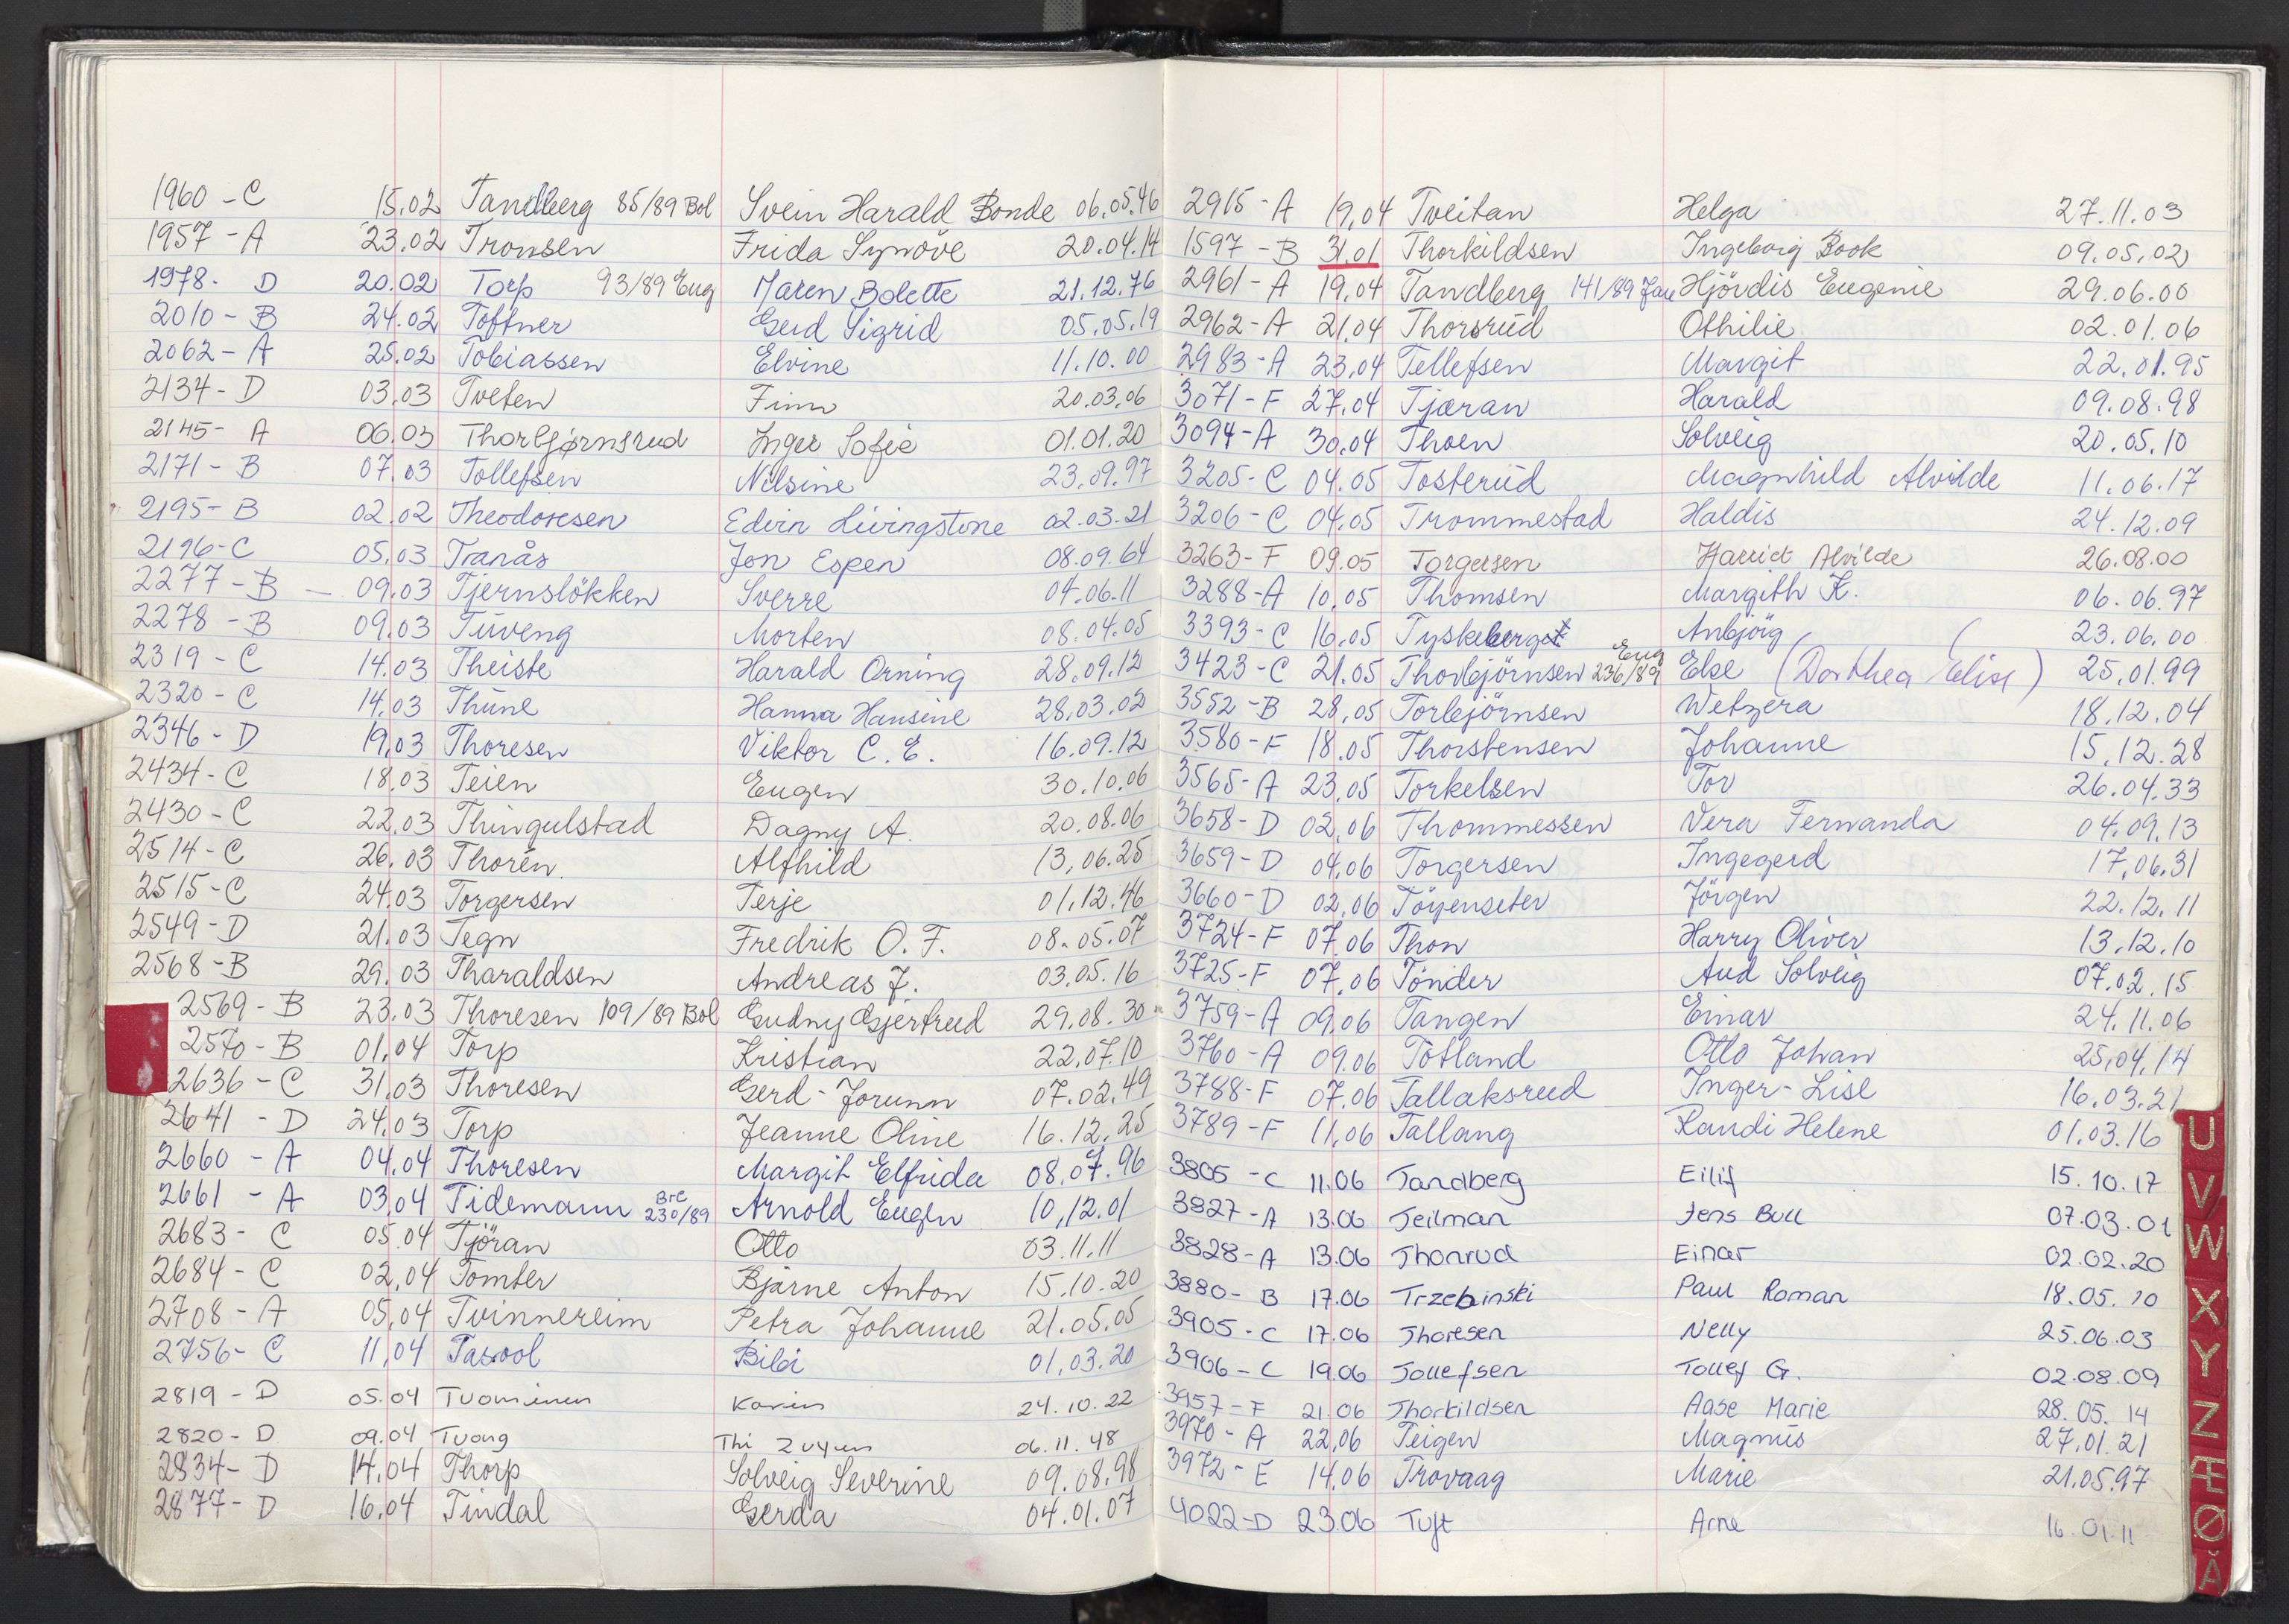 1960 - C 15.02 Tandberg 85/89 Bol Svein Harald Bonde 06.05.46
1957 - A 23.02 Tronsen Frida Synöve 20.04.14
1978 - D 20.02 Torp 93/89 Eug Maren Bolette 21.12.76
2010 - B 24.02 Toffner Gerd Sigrid 05.05.19
2062 - A 25.02 Tobiassen Elvine 11.10.00
2134 - D 03.03 Tveten Finn 20.03.06
2145 - A 06.03 Thorbjørnsrud Inger Sofie 01.01.20
2171 - B 07.03 Tollefsen Nilsine 23.09.97
2195 - B 02.02 Theodoresen Edvin Livingstone 02.03.21
2196 - C 05.03 Tranås Jon Espen 08.09.64
2277 - B - 09.03 Tjernslökken Sverre 04.06.11
2278 - B 09.03 Tuveng Morten 08.04.05
2319 - C 14.03 Theiste Harald Orning 28.09.12
2320 - C 14.03 Thune Hanna Hansine 28.03.02
2346 - D 19.03 Thoresen Viktor C. E. 16.09.12
2434 - C 18.03 Teien Eugen 30.10.06
2430 - C 22.03 Thingulstad Dagny A. 20.08.06
2514 - C 26.03 Thorén Alfhild 13.06.25
2515 - C 24.03 Torgersen Terje 01.12.46
2549 - D 21.03 Tegn Fredrik O. F. 08.05.07
2568 - B 29.03 Tharaldsen Andreas J. 03.05.16
2569 - B 23.03 Thoresen 109/89 Bol Gudny Gjertrud 29.08.30
2570 - B 01.04 Torp Kristian 22.07.10
2636 - C 31.03 Thoresen Gerd - Jorunn 07.02.49
2641 - D 24.03 Torp Jeanne Oline 16.12.25
2660 - A 04.04 Thoresen Margit Elfrida 08.07.96
2661 - A 03.04 Tidemann Bre 230/89 Arnold Eugen 10.12.01
2683 - C 05.04 Tjöran Otto 03.11.11
2684 - C 02.04 Tomter Bjarne Anton 15.10.20
2708 - A 05.04 Tvinnereim Petra Johanne 21.05.05
2756 - C 11.04 Tasool Bibi 01.03.20
2819 - D 05.04 Tuominen Karin 24.10.22
2820 - D 09.04 Tuong Thi 06.11.48
2834 - D 14.04 Thorp Solveig Severine 09.08.98
2877 - D 16.04 Tindal Gerda 04.01.07
2915 - A 19.04 Tveitan Helga 27.11.03
1597 - B 31.01 Thorkildsen Ingeborg Book 09.05.02
2961 - A 19.04 Tandberg 141/89 Jau Hjördis Eugenie 29.06.00
2962 - A 21.04 Thorsrud Othilie 02.01.06
2983 - A 23.04 Tellefsen Margit 22.01.95
3071 - F 27.04 Tjæran Harald 09.08.98
3094 - A 30.04 Thoen Solveig 20.05.10
3205 - C 04.05 Tosterud Magnhild Alvilde 11.06.17
3206 - C 04.05 Trommestad Haldis 24.12.09
3263 - F 09.05 Torgersen Harriet Alvilde 26.08.00
3288 - A 10.05 Thomsen Margith K. 06.06.97
3393 - C 16.05 Tyskeberget Anbjörg 23.06.00
3423 - C 21.05 Thorbjörnsen Eug 236/89 Else (Dorthea Elise) 25.01.99
3552 - B 28.05 Torbjörnsen Wetzera 18.12.04
3580 - F 18.05 Thorstensen Johanne 15.12.28
3565 - A 23.05 Torkelsen Tor 26.04.33
3658 - D 02.06 Thommessen Vera Fernanda 04.09.13
3659 - D 04.06 Torgersen Ingegerd 17.06.31
3660 - D 02.06 Töyenseter Jörgen 22.12.11
3724 - F 07.06 Thon Harry Oliver 13.12.10
3725 - F 07.06 Tönder Aud Solveig 07.02.15
3759 - A 09.06 Tangen Einar 24.11.06
3760 - A 09.06 Totland Otto Johan 25.04.14
3788 - F 07.06 Tallaksrud Inger - Lise 16.03.21
3789 - F 11.06 Tallang Randi Helene 01.03.16
3805 - C 11.06 Tandberg Eilif 15.10.17
3827 - A 13.06 Teilman Jens Bull 07.03.01
3828 - A 13.06 Thonrud Einar 02.02.20
3880 - B 17.06 Trzebinski Paul Roman 18.05.10
3905 - C 17.06 Thoresen Nelly 25.06.03
3906 - C 19.06 Tollefsen Tollef G. 02.08.09
3957 - F 21.06 Thorkildsen Aase Marie 28.05.14
3970 - A 22.06 Teigen Magnus 27.01.21
3972 - E 14.06 Trovaag Marie 21.05.97
4022 - D 23.06 Tuft Arne 16.01.11
U
V
W
X
Y
Z
Æ
Ø
Å